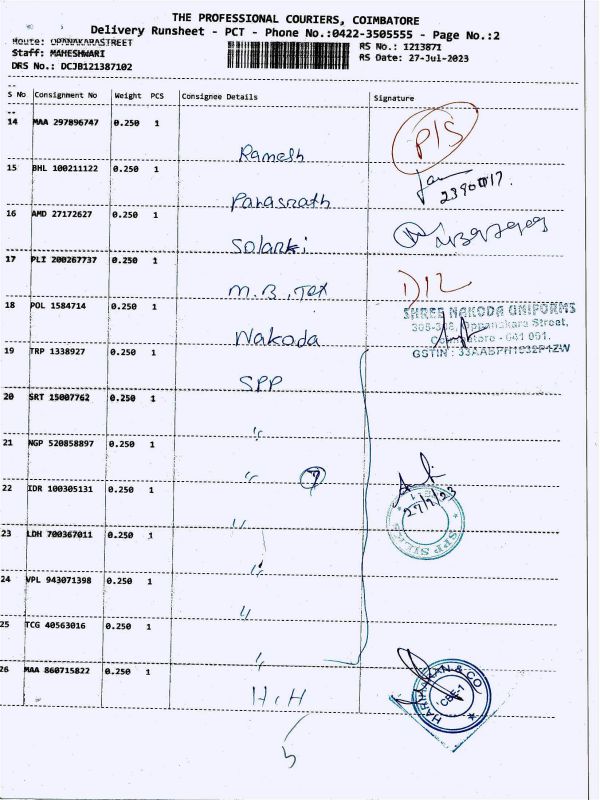 THE PROFESSIONAL COURIERS, COIMBATORE
Delivery Runsheet - PCT - Phone No.:0422-3505555 - Page No.:2
Route: OPPANAKARASTREET
Staff: MAHESHWARI
DRS No.: DCJB121387102
RS No.: 1213871
RS Date: 27-Jul-2023
S No Consignment No Weight PCS Consignee Details Signature
14 MAA 297896747 0.250 1 Ramesh P/S
15 BHL 100211122 0.250 1 Parasnath
16 AMD 27172627 0.250 1 Solanki
17 PLI 200267737 0.250 1 M.B.Tex D12
18 POL 1584714 0.250 1 Nakoda
SHREE NAKODA UNIFORMS
305-308, Oppanakara Street,
Coimbatore - 641 001.
GSTIN :
19 TRP 1338927 0.250 1 SPP
20 SRT 15007762 0.250 1 "
21 NGP 520858897 0.250 1 " 7
22 IDR 100305131 0.250 1 "
27/7/23
SPP SILKS
23 LDH 700367011 0.250 1 "
24 VPL 943071398 0.250 1 "
25 TCG 40563016 0.250 1 "
26 MAA 860715822 0.250 1 H.H
HARIHARAN & CO
CBE-1